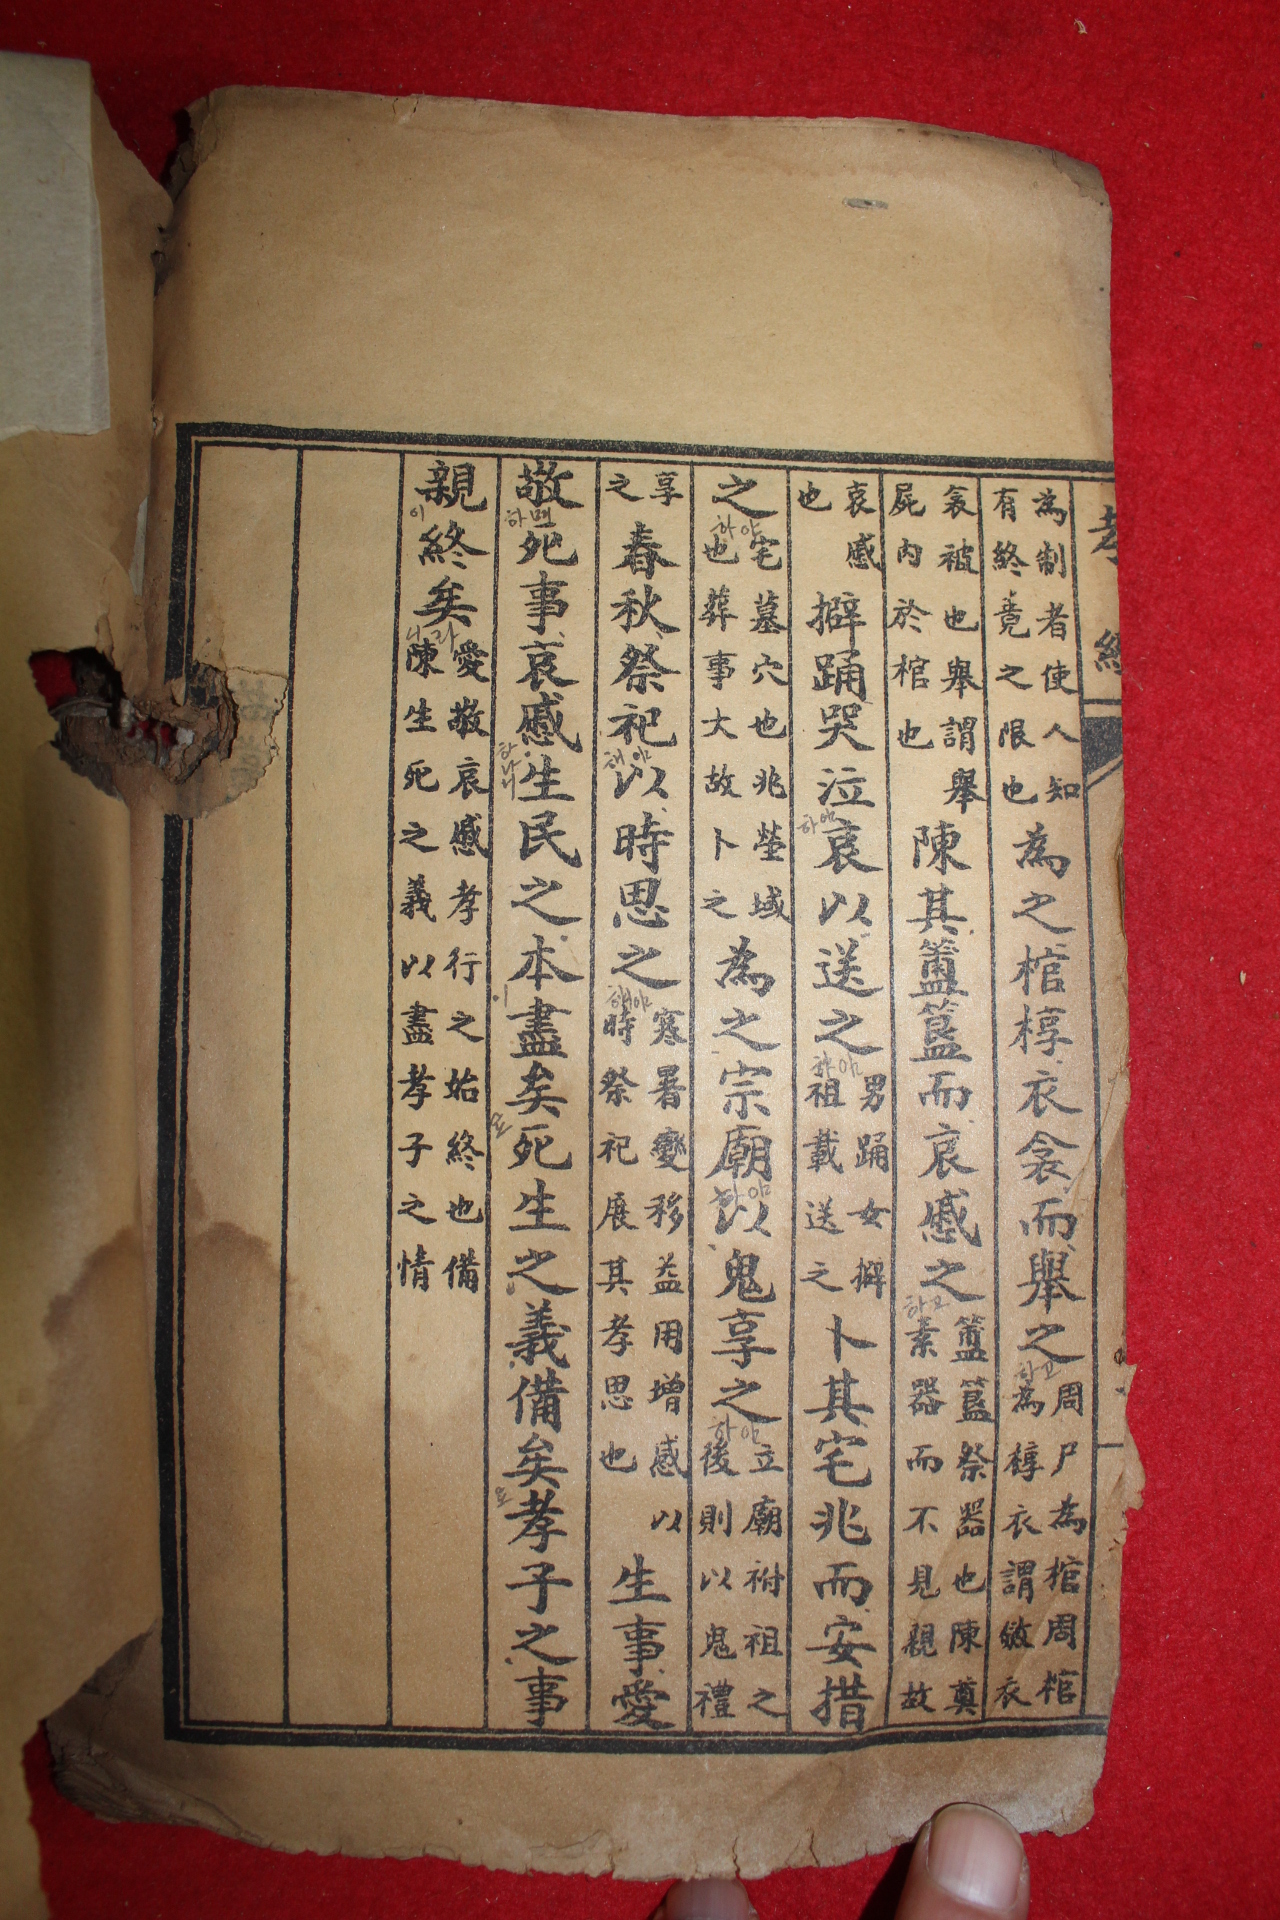 孝經
為制者使人知有終竟之限也為之棺椁衣衾而舉之하고周尸為棺周棺為椁衣謂斂衣
衾被也舉謂舉屍內於棺也陳其簠簋而哀慼之하고簠簋祭器也陳奠素器而不見親故
哀慼也擗踊哭泣하야哀以送之하야男踊女擗祖載送之卜其宅兆而安措
之하야宅墓穴也兆塋域也葬事大故卜之為之宗廟하야以鬼享之하야立廟祔祖之後則以鬼禮
享之春秋祭祀해야以時思之해야寒暑變移益用增感以時祭祀展其孝思也生事愛
敬하매死事哀慼하나니生民之本이盡矣로死生之義備矣요孝子之事
親이終矣니라愛敬哀慼孝行之始終也備陳生死之義以盡孝子之情